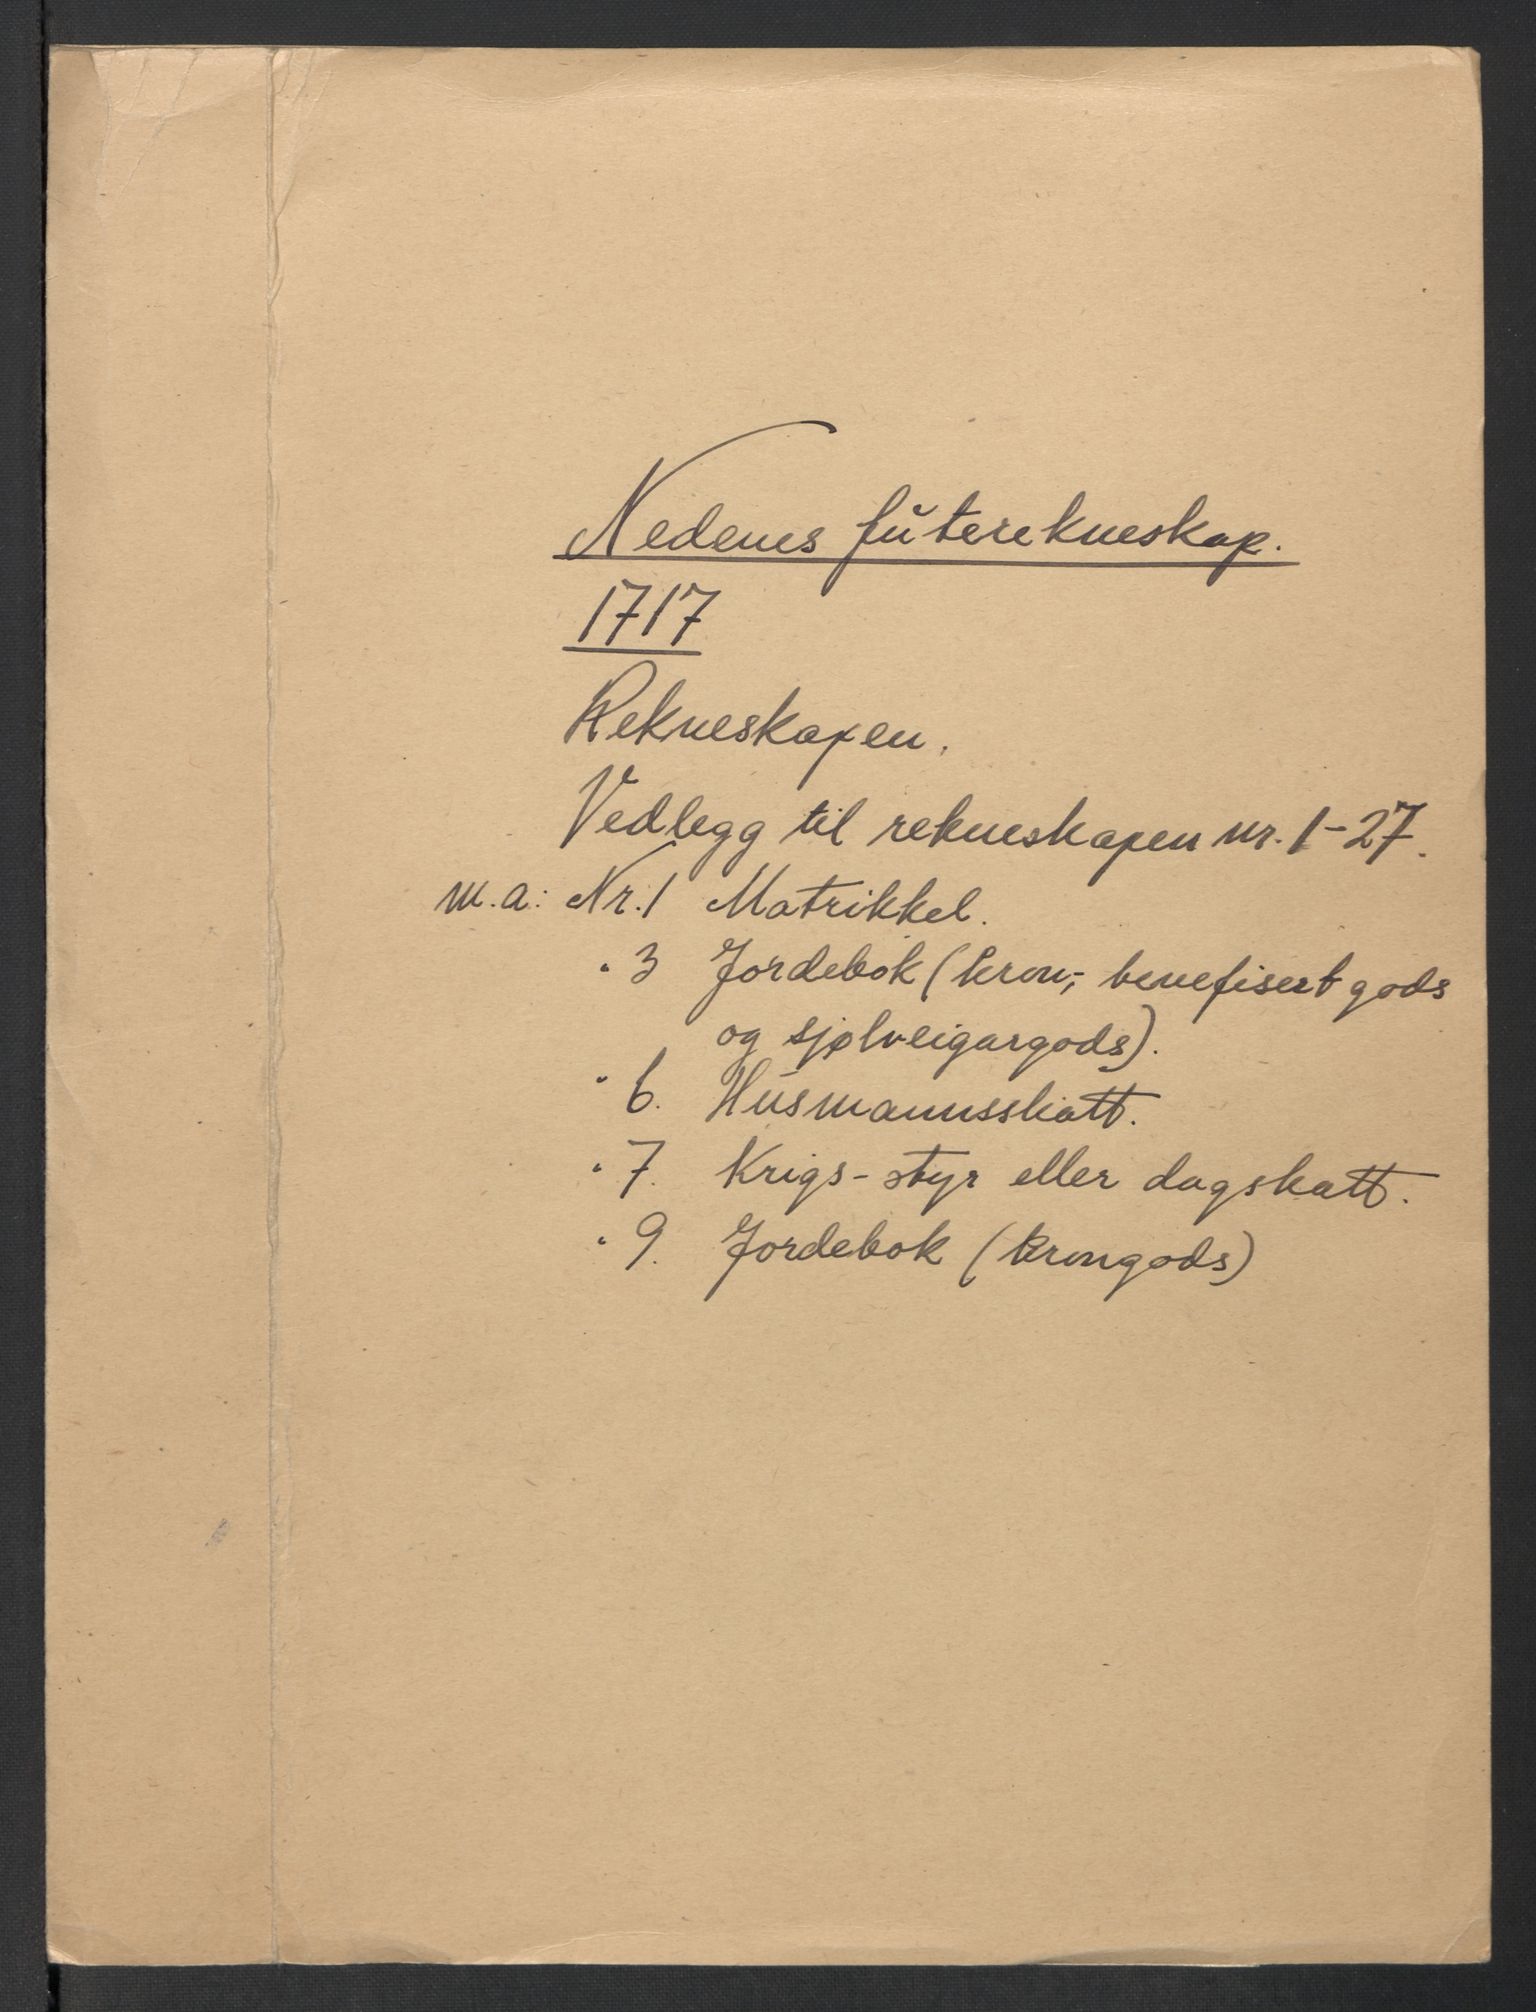 Nedenes futerekneskap.
1717
Rekneskapen.
Vedlegg til rekneskapen nr. 1-27.
m.a: Nr. 1 Matrikkel.
" 3 Jordebok (kron-, benefisert gods
og sjølveigargods).
" 6. Husmannsskatt.
" 7. Krigs-styr eller dagskatt.
" 9. Jordebok (krongods)